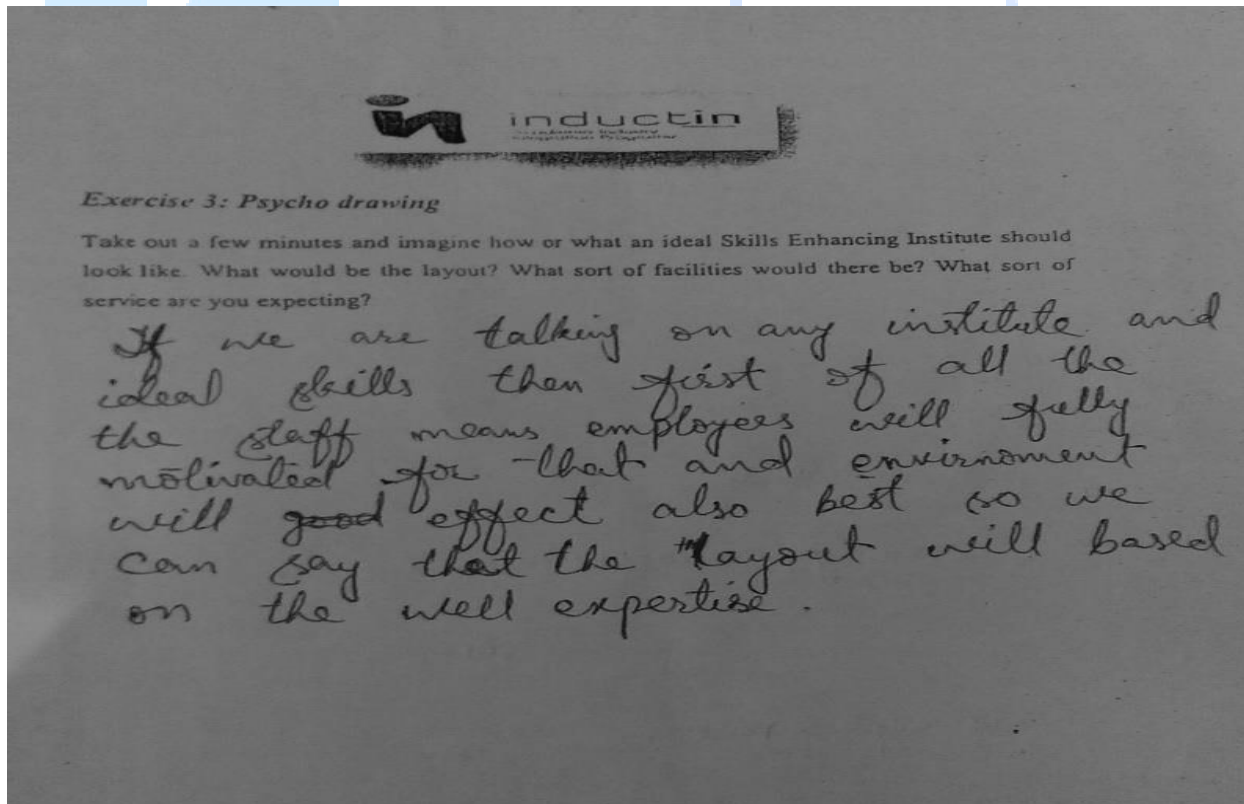 in inductin
Exercise 3: Psycho drawing
Take out a few minutes and imagine how or what an ideal Skills Enhancing Institute should
look like. What would be the layout? What sort of facilities would there be? What sort of
service are you expecting?
If we are talking on any institute and
ideal skills then first of all the
the staff means employees will fully
motivated for that and envirnoment
will good effect also best so we
can say that the layout will based
on the well expertise.